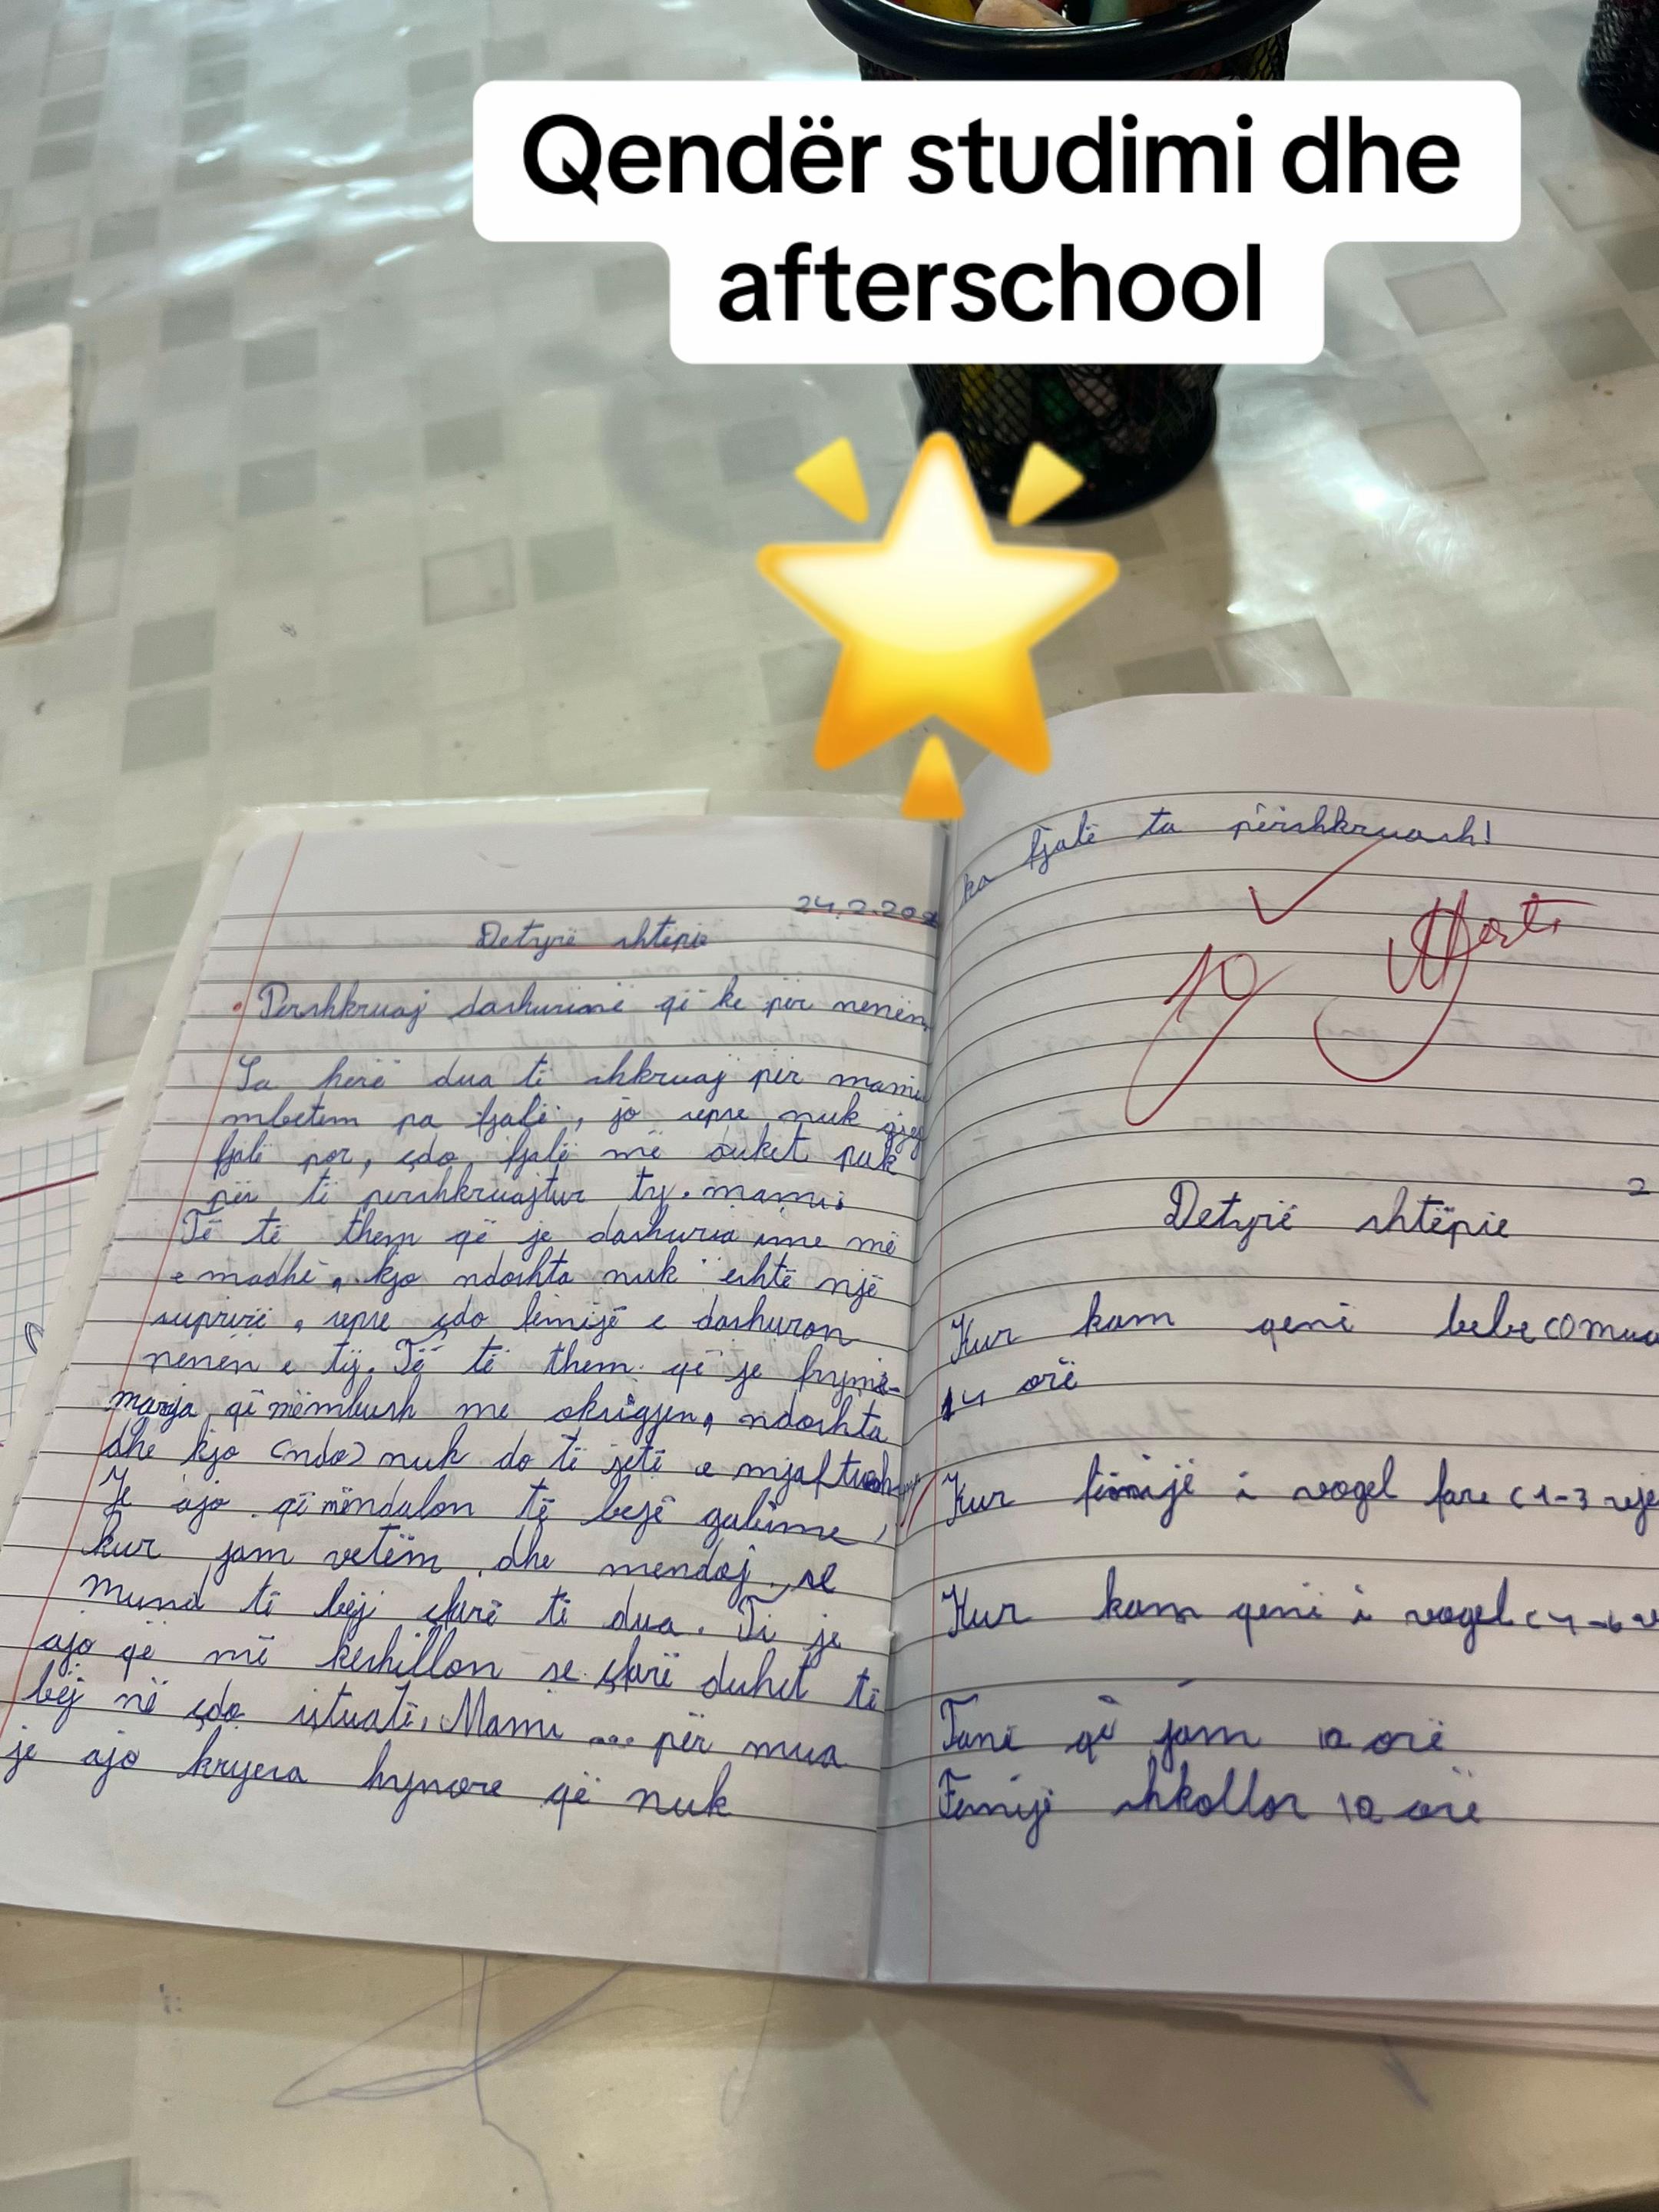 Qendër studimi dhe
afterschool
24.2.20
Detyrë shtëpie
Përshkruaj dashurinë që ke për nënën.
Sa herë dua të shkruaj për mamin
mbetem pa fjalë, jo sepse nuk gjej
fjalë por, çdo fjalë më duket pak
për të përshkruajtur ty mami.
Të të them që je dashuria ime më
e madhe, kjo ndoshta nuk është një
suprizë, sepse çdo fëmijë e dashuron
nënën e tij. Të të them që je frymë-
marrja që mëmbush me oksigjen, ndoshta
dhe kjo (ndo) nuk do të jetë e mjaftueshme
Je ajo që mëndalon të bëjë gabime,
kur jam vetëm dhe mendoj se
mund të bëji çfarë të dua. Ti je
ajo që më këshillon se çfarë duhet të
bëj në çdo situatë. Mami ... për mua
je ajo kryera hynore që nuk
ka fjalë ta përshkruash!
10
Detyrë shtëpie
2
Kur kam qenë bebe (0 mua
14 orë
Kur fëmijë i vogël fare (1-3 vje
Kur kam qenë i vogël (4-6 v
Tani që jam 10 orë
Fëmijë shkollor 10 orë